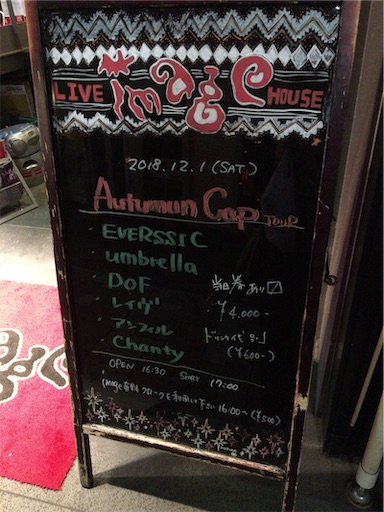 LIVE image HOUSE
2018.12.1 (SAT)
Autumun Gap TOUR
・EVERSSIC
・umbrella
・DOF
・レイヴ
・アンフィル
・Chanty
当日券あり
¥4,000-
ドリンク代別
(¥600-)
OPEN 16:30 START 17:00
image有料クロークを利用して下さい 16:00~ (¥500)